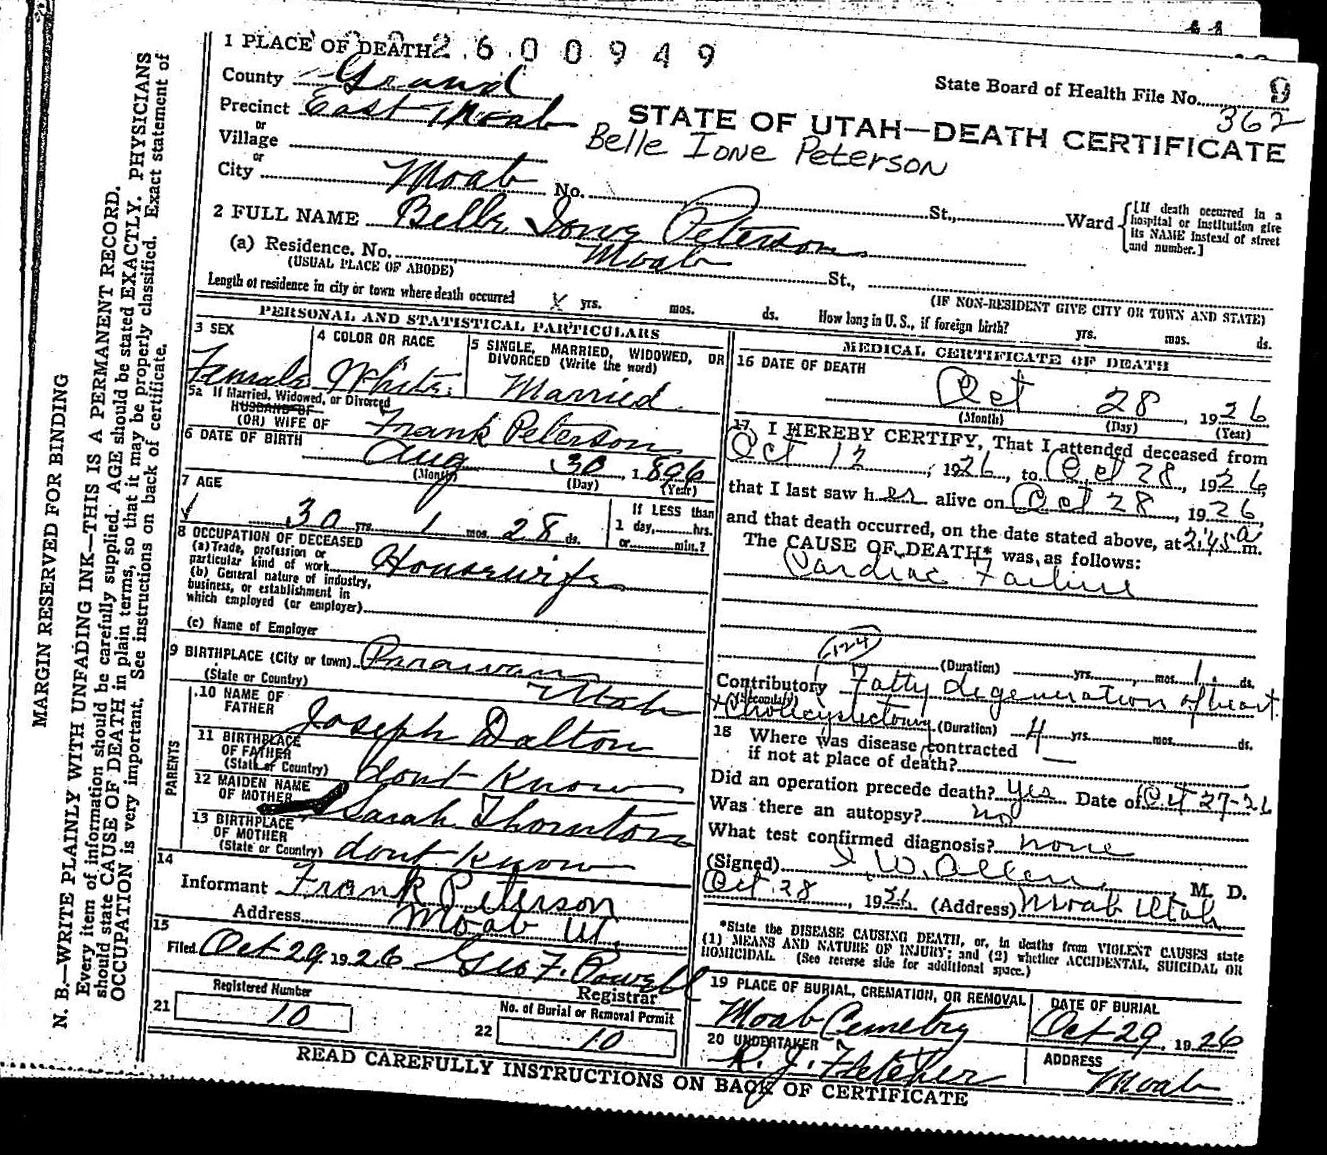 MARGIN RESERVED FOR BINDING
N. B.—WRITE PLAINLY WITH UNFADING INK—THIS IS A PERMANENT RECORD.
Every item of information should be carefully supplied. AGE should be stated EXACTLY. PHYSICIANS
should state CAUSE OF DEATH in plain terms, so that it may be properly classified. Exact statement of
OCCUPATION is very important. See instructions on back of certificate.
1 PLACE OF DEATH 2600949
State Board of Health File No. 9
362
County Grand
Precinct East Moab
STATE OF UTAH—DEATH CERTIFICATE
Belle Ione Peterson
or
Village
or
City Moab No. St., Ward
[If death occurred in a
hospital or institution give
its NAME instead of street
and number.]
2 FULL NAME Belle Ione Peterson
(a) Residence, No. Moab St.,
(USUAL PLACE OF ABODE)
(IF NON-RESIDENT GIVE CITY OR TOWN AND STATE)
Length of residence in city or town where death occurred X yrs. mos. ds. How long in U. S., if foreign birth? yrs. mos. ds.
PERSONAL AND STATISTICAL PARTICULARS
3 SEX
Female
4 COLOR OR RACE
White
5 SINGLE, MARRIED, WIDOWED, OR
DIVORCED (Write the word)
Married
5a If Married, Widowed, or Divorced
HUSBAND OF
(OR) WIFE OF Frank Peterson
6 DATE OF BIRTH Aug 30, 1896
(Month) (Day) (Year)
7 AGE
30 yrs. 1 mos. 28 ds.
If LESS than
1 day, hrs.
or min.?
8 OCCUPATION OF DECEASED
(a) Trade, profession or
particular kind of work Housewife
(b) General nature of industry,
business, or establishment in
which employed (or employer)
(c) Name of Employer
9 BIRTHPLACE (City or town) Parawan
(State or Country) Utah
PARENTS
10 NAME OF
FATHER Joseph Dalton
11 BIRTHPLACE
OF FATHER
(State or Country) dont know
12 MAIDEN NAME
OF MOTHER Sarah Thornton
13 BIRTHPLACE
OF MOTHER
(State or Country) dont know
14
Informant Frank Peterson
Address Moab Ut.
15
Filed Oct 29 1926 Geo F. Powell
Registrar
21 Registered Number
10
22 No. of Burial or Removal Permit
10
MEDICAL CERTIFICATE OF DEATH
16 DATE OF DEATH
Oct 28, 1926
(Month) (Day) (Year)
17 I HEREBY CERTIFY, That I attended deceased from
Oct 12, 1926, to Oct 28, 1926,
that I last saw her alive on Oct 28, 1926,
and that death occurred, on the date stated above, at 2:45 a m.
The CAUSE OF DEATH* was, as follows:
Cardiac Failure
(Duration) yrs., mos. 1 ds.
Contributory Fatty degeneration of heart
(Secondary)
+ Cholicystectomy (Duration) 4 yrs. mos. ds.
18 Where was disease contracted
if not at place of death? —
Did an operation precede death? yes Date of Oct 27-26
Was there an autopsy? no
What test confirmed diagnosis? none
(Signed) I. W. Allen, M. D.
Oct 28, 1926. (Address) Moab Utah
*State the DISEASE CAUSING DEATH, or, in deaths from VIOLENT CAUSES state
(1) MEANS AND NATURE OF INJURY; and (2) whether ACCIDENTAL, SUICIDAL OR
HOMICIDAL. (See reverse side for additional space.)
19 PLACE OF BURIAL, CREMATION, OR REMOVAL
Moab Cemetry
DATE OF BURIAL
Oct 29, 1926
20 UNDERTAKER
R. J. Fletcher
ADDRESS
Moab
READ CAREFULLY INSTRUCTIONS ON BACK OF CERTIFICATE